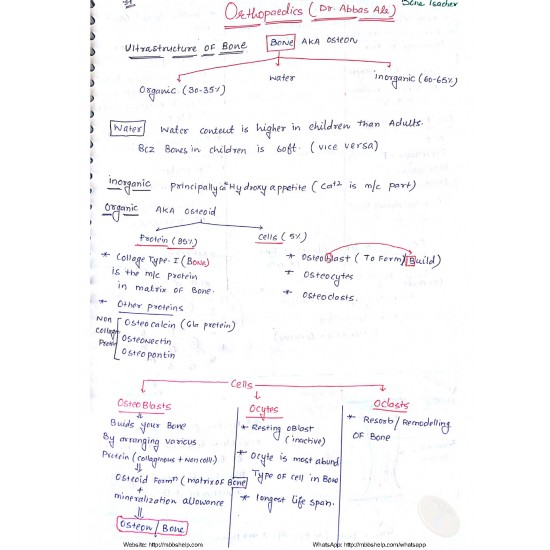 Orthopaedics (Dr. Abbas Ale)
Bone Teacher
Ultrastructure of Bone
Bone AKA Osteon
Organic (30-35%)
Water
Inorganic (60-65%)
Water Water content is higher in children than Adults.
Bcz Bones in children is soft. (vice versa)
inorganic principally Hydroxy appetite (Ca+2 is m/c part)
Organic AKA osteoid
Protein (95%)
Cells (5%)
* Collage Type-I (Bone)
is the m/c protein
in matrix of Bone.
* Other proteins
Non
Collage
Protein
Osteocalcin (Gla protein)
Osteonectin
Osteopontin
* Osteoblast (To Form/Build)
* Osteocytes
* Osteoclasts.
Cells
OsteoBlasts
Buids your Bone
By arranging various
Protein (collagenous + Non coll.)
Osteoid Formn (matrix of Bone)
+
mineralization allowance
Osteon/Bone
Ocytes
* Resting oBlast
(inactive)
* Ocyte is most abund
Type of cell in Bone
* longest life span.
Oclasts
* Resorb/Remodelling
OF Bone
Website: http://mbbshelp.com
WhatsApp: http://mbbshelp.com/whatsapp